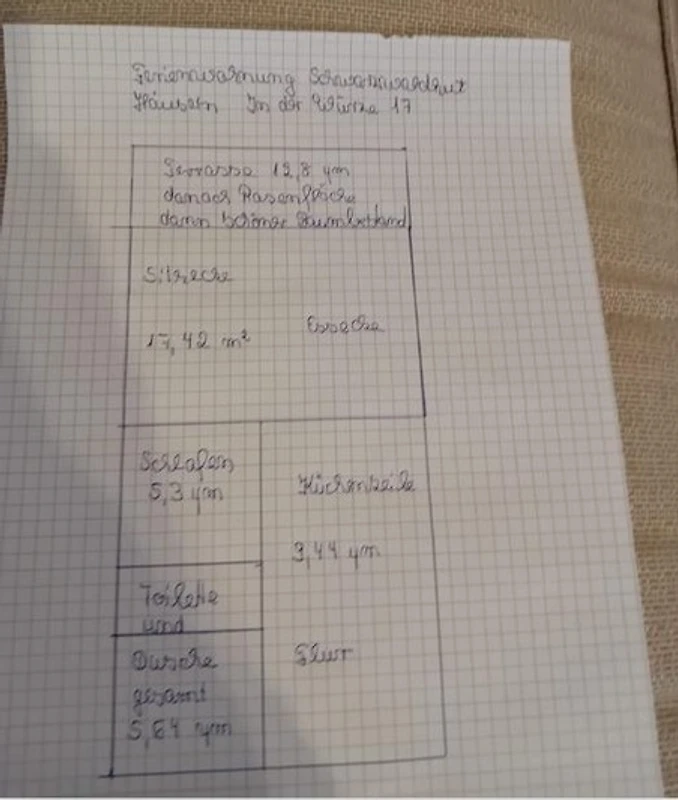 Ferienwohnung Schwarzwaldglut
Häusern In der Würze 17
Terrasse 12,8 qm
danach Rasenfläche
dann schöner Baumbestand
Sitzecke
Essecke
17,42 m²
Schlafen
5,3 qm
Küchenzeile
9,44 qm
Toilette
und
Dusche
gesamt
5,64 qm
Flur